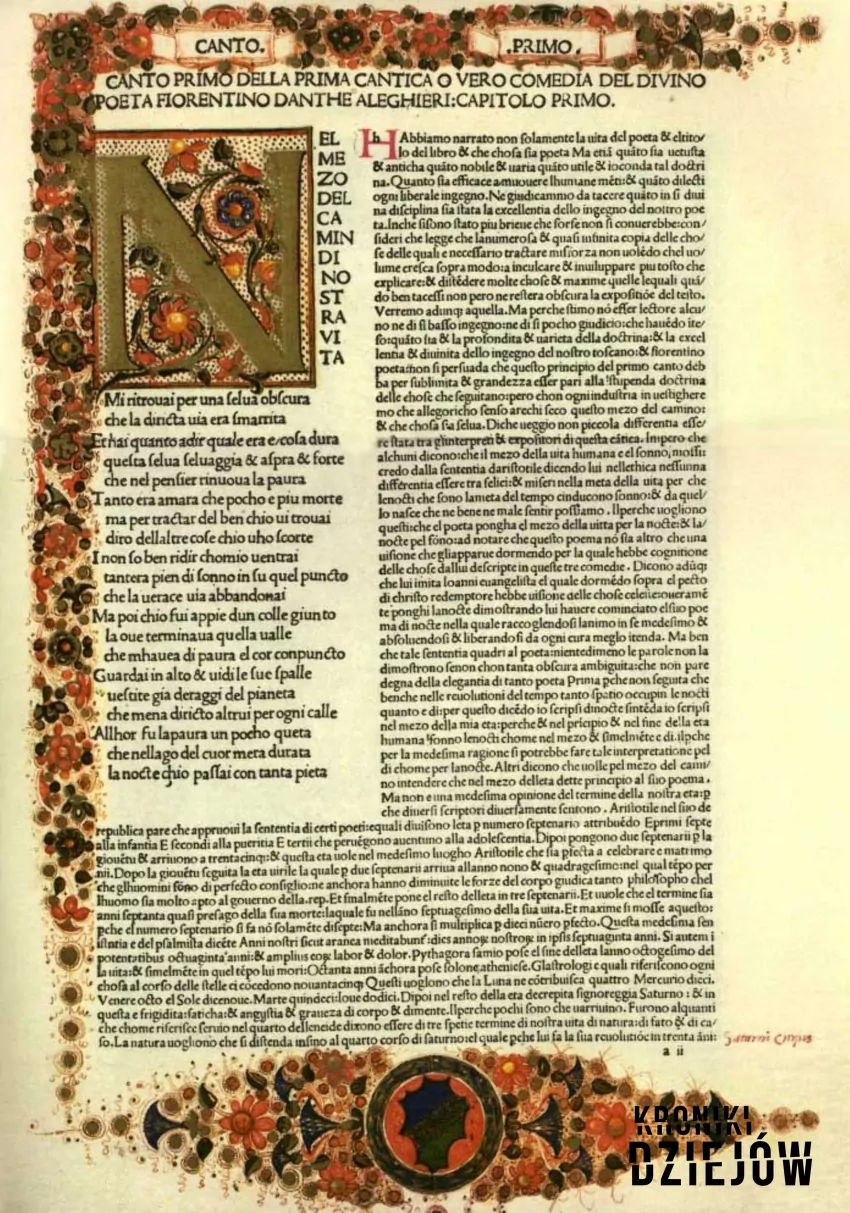 CANTO. .PRIMO.
CANTO PRIMO DELLA PRIMA CANTICA O VERO COMEDIA DEL DIVINO
POETA FIORENTINO DANTHE ALEGHIERI: CAPITOLO PRIMO.
N
EL
ME
ZO
DEL
CA
MIN
DI
NO
ST
RA
VI
TA
Mi ritrouai per una ſelua obſcura
che la diricta uia era ſmarrita
Et hai quanto adir quale era e coſa dura
queſta ſelua ſeluaggia & aſpra & forte
che nel penſier rinuoua la paura
Tanto era amara che pocho e piu morte
ma per tractar del ben chio ui trouai
diro dellaltre coſe chio uho ſcorte
I non ſo ben ridir chomio uentrai
tantera pien di ſonno in ſu quel puncto
che la uerace uia abbandonai
Ma poi chio fui appie dun colle giunto
la oue terminaua quella ualle
che mhauea di paura el cor conpuncto
Guardai in alto & uidi le ſue ſpalle
ueſtite gia deraggi del pianeta
che mena diricto altrui per ogni calle
Allhor fu la paura un pocho queta
che nellago del cuor mera durata
la nocte chio paſſai con tanta pieta
HAbbiamo narrato non ſolamente la uita del poeta & eltito/
lo del libro & che choſa ſia poeta Ma etiã quãto ſia uetuſta
& anticha quãto nobile & uaria quãto utile & ioconda tal doctri
na. Quanto ſia efficace a muouere lhumane mẽti: & quãto dilecti
ogni liberale ingegno. Ne giudicammo da tacere quãto in ſi diui
na diſciplina ſia ſtata la excellentia dello ingegno del noſtro poe
ta. Inche ſiſono ſtato piu brieue che forſe non ſi conuerrebbe: con/
ſideri che legge che lanumeroſa & quaſi infinita copia delle cho/
ſe delle quali e neceſſario tractare miſforza non uolẽdo chel uo/
lume creſca ſopra modo: a inculcare & inuiluppare piu toſto che
explicare: & diſtẽdere molte choſe & maxime quelle lequali quã/
do ben taceſſi non pero ne reſtera obſcura la expoſitiõe del teſto.
Verremo adunq; aquella. Ma perche ſtimo nõ eſſer lectore alcu/
no ne di ſi baſſo ingegno: ne di ſi pocho giudicio: che hauẽdo ite/
ſo: quãto ſia & la profondita & uarieta della doctrina: & la excel
lentia & diuinita dello ingegno del noſtro toſcano: & fiorentino
poeta: non ſi perſuada che queſto principio del primo canto deb
ba per ſublimita & grandezza eſſer pari alla ſtupenda doctrina
delle choſe che ſeguitano: pero chon ogni induſtria in ueſtighere
mo che allegoricho ſenſo arechi ſeco queſto mezo del camino:
& che choſa ſia ſelua. Diche ueggio non piccola differentia eſſe/
re ſtata tra glinterpreti & expoſitori di queſta cãtica. Impero che
alchuni dicono: che il mezo della uita humana e el ſonno, moſſi:
credo dalla ſententia dariſtotile dicendo lui nellethica neſſuna
differentia eſſere tra felici: & miſeri nella meta della uita per che
lenocti che ſono lameta del tempo cinducono ſonno: & da quel/
lo naſce che ne bene ne male ſentir poſſiamo. Ilperche uogliono
queſti: che el poeta pongha el mezo della uitta per la nocte: & la/
nocte pel ſõno: ad notare che queſto poema nõ ſia altro che una
uiſione che gliapparue dormendo per la quale hebbe cognitione
delle choſe dallui deſcripte in queſte tre comedie. Dicono adũq;
che lui imita Ioanni euangeliſta el quale dormẽdo ſopra el pecto
di chriſto redemptore hebbe uiſione delle choſe celeſte: o ueramẽ
te ponghi lanocte dimoſtrando lui hauere cominciato elſuo poe
ma di nocte nella quale raccoglendoſi lanimo in ſe medeſimo &
abſoluendoſi & liberandoſi da ogni cura meglo itenda. Ma ben
che tale ſententia quadri al poeta: nientedimeno le parole non la
dimoſtrono ſenon chon tanta obſcura ambiguita: che non pare
degna della elegantia di tanto poeta Prima pche non ſeguita che
benche nelle reuolutioni del tempo tanto ſpatio occupin le nocti
quanto e di: per queſto dicẽdo io ſcripſi dinocte ſintẽda io ſcripſi
nel mezo della mia eta: perche & nel pricipio & nel fine della eta
humana ſonno lenocti chome nel mezo & ſimelmẽte e di. ilpche
per la medeſima ragione ſi potrebbe fare tale interpretatione pel
di chome per lanocte. Altri dicono che uolle pel mezo del cami/
no intendere che nel mezo delleta dette principio al ſuo poema.
Ma non e una medeſima opinione del termine della noſtra eta: p
che diuerſi ſcriptori diuerſamente ſentono. Ariſtotile nel ſuo de
republica pare che appruoui la ſententia di certi poeti: equali diuiſono leta p numero ſeptenario attribuẽdo E primi ſepte
alla infantia E ſecondi alla pueritia E tertii che peruẽgono auentuno alla adoleſcentia. Dipoi pongono due ſeptenarii p la
giouẽtu & arriuono a trentacinq; & queſta eta uole nel medeſimo luogho Ariſtotile che ſia pfecta a celebrare e matrimo
nii. Dopo la giouẽtu ſeguita la eta uirile la quale p due ſeptenarii arriua allanno nono & quadrageſimo: nel qual tẽpo per
che glhuomini ſono di perfecto conſiglio: ne anchora hanno diminuite le forze del corpo giudica tanto philoſopho chel
lhuomo ſia molto apto al gouerno della .rep. Et finalmẽte pone el reſto delleta in tre ſeptenarii. Et uuole che el termine ſia
anni ſeptanta quaſi preſago della ſua morte: laquale fu nellãno ſeptuageſimo della ſua uita. Et maxime ſi moſſe aqueſto:
pche el numero ſeptenario ſi fa nõ ſolamẽte diſepte: Ma anchora ſi multiplica p dieci nũero pfecto. Queſta medeſima ſen
tẽtia e del pſalmiſta dicẽte Anni noſtri ſicut aranea meditabunf: dies annoꝝ noſtroꝝ in ipſis ſeptuaginta anni. Si autem i
potentatibus octuaginta anni: & amplius eoꝝ labor & dolor. Pythagora ſamio poſe el fine delleta lanno octogeſimo del
la uita: & ſimelmẽte in quel tẽpo lui mori: Octanta anni ãchora poſe ſolone athenieſe. Glaſtrologi e quali riferiſcono ogni
choſa al corſo delle ſtelle ci cõcedono nouantacinq; Queſti uogliono che la Luna ne cõtribuiſca quattro Mercurio dieci.
Venere octo el Sole dicenoue. Marte quindeci: Ioue dodici. Dipoi nel reſto della eta decrepita ſignoreggia Saturno: & in
queſta e frigidita: faticha: & anguſtia & graueza di corpo & di mente. Ilperche pochi ſono che uarriuino. Furono alquanti
che chome riferiſce ſeruio nel quarto delleneide dixono eſſere di tre ſpetie termine di noſtra uita di natura: di fato & di ca/
ſo. La natura uogliono che ſi diſtenda inſino al quarto corſo di ſaturno: el quale pche lui fa la ſua reuolutiõe in trenta ãni:
a ii
KRONIKI
DZIEJÓW